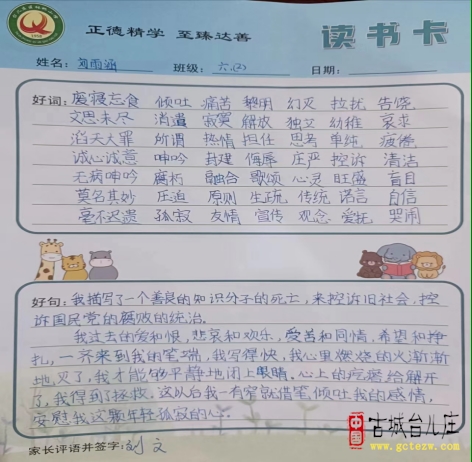 正德精学 至臻达善
读书卡
姓名: 刘雨涵 班级: 六(2) 日期:
好词: 废寝忘食 倾吐 痛苦 黎明 幻灭 拉扰 告饶
文思未尽 消遣 寂寞 解放 独立 幼稚 哀求
滔天大罪 所谓 热情 担任 思考 单纯 疲倦
诚心诚意 呻吟 封建 侮辱 庄严 控诉 清洁
无病呻吟 腐朽 融合 歌颂 心灵 旺盛 盲目
莫名其妙 庄迫 原则 生疏 传统 诺言 自信
毫不迟疑 孤寂 友情 宣传 观念 爱抚 哭闹
好句: 我描写了一个善良的知识分子的死亡,来控诉旧社会,控
诉国民党的腐败的统治.
我过去的爱和恨,悲哀和欢乐,受苦和同情,希望和挣
扎,一齐来到我的笔端,我写得快,我心里燃烧的火渐渐
地灭了,我才能够平静地闭上眼睛.心上的疙瘩给解开
了,我得到了拯救.这以后我一有空就借笔倾吐我的感情,
安慰我这颗年轻孤寂的心.
家长评语并签字: 刘文
中国
古城台儿庄
www.gctezw.com